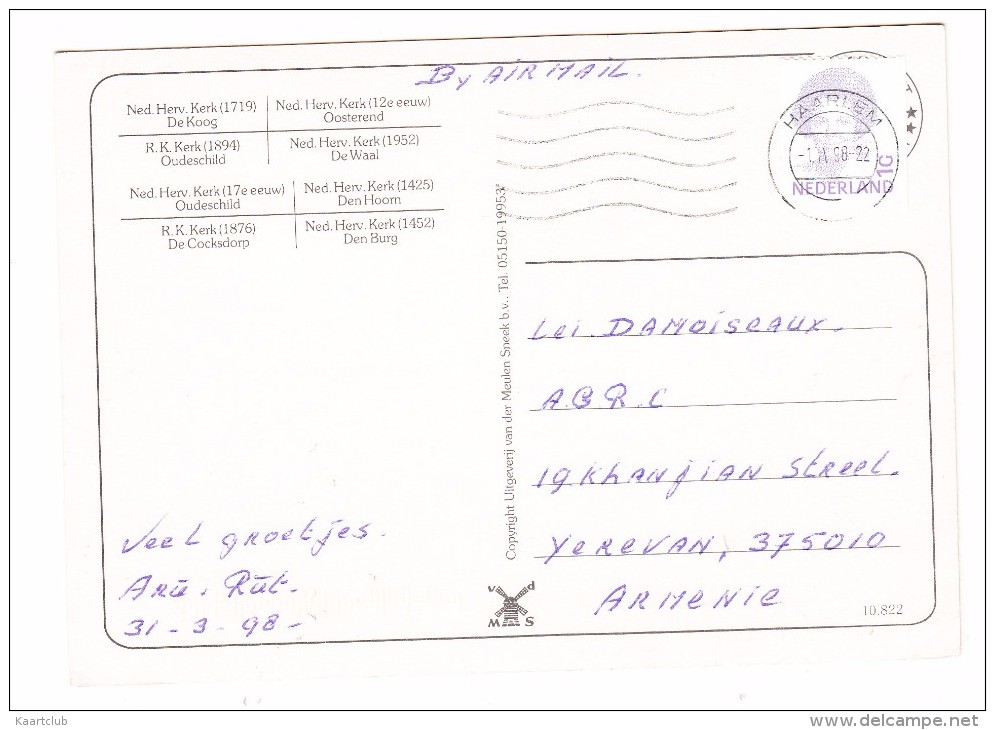 By AIR MAIL.
Ned. Herv. Kerk (1719)
De Koog
Ned. Herv. Kerk (12e eeuw)
Oosterend
R.K. Kerk (1894)
Oudeschild
Ned. Herv. Kerk (1952)
De Waal
Ned. Herv. Kerk (17e eeuw)
Oudeschild
Ned. Herv. Kerk (1425)
Den Hoorn
R.K. Kerk (1876)
De Cocksdorp
Ned. Herv. Kerk (1452)
Den Burg
HAARLEM
98-22
NEDERLAND
1G
Copyright Uitgeverij van der Meulen Sneek b.v.. Tel. 05150-19953*
Lei. DAMOISEAUX.
A.G.R.C
19 KHANJIAN Street.
YEREVAN, 375010
ARMENIE
Veel groetjes.
Rut.
31-3-98-
v d
M S
10.822
Kaartclub
www.delcampe.net